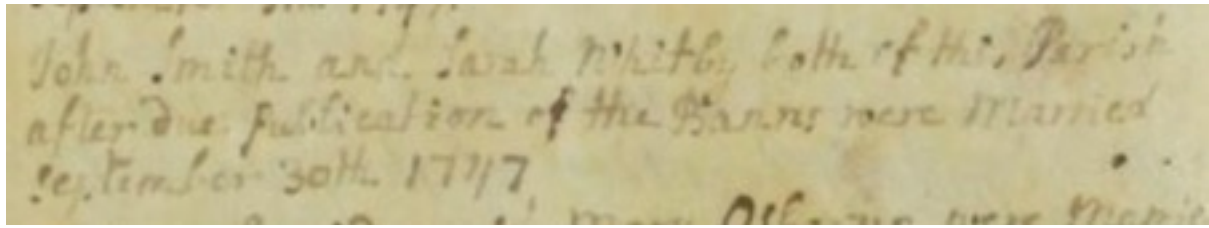 September 1747
John Smith and Sarah Whitby both of this Parish
after due Publication of the Banns were Married
September 30th 1747
Mary Osborne were Married